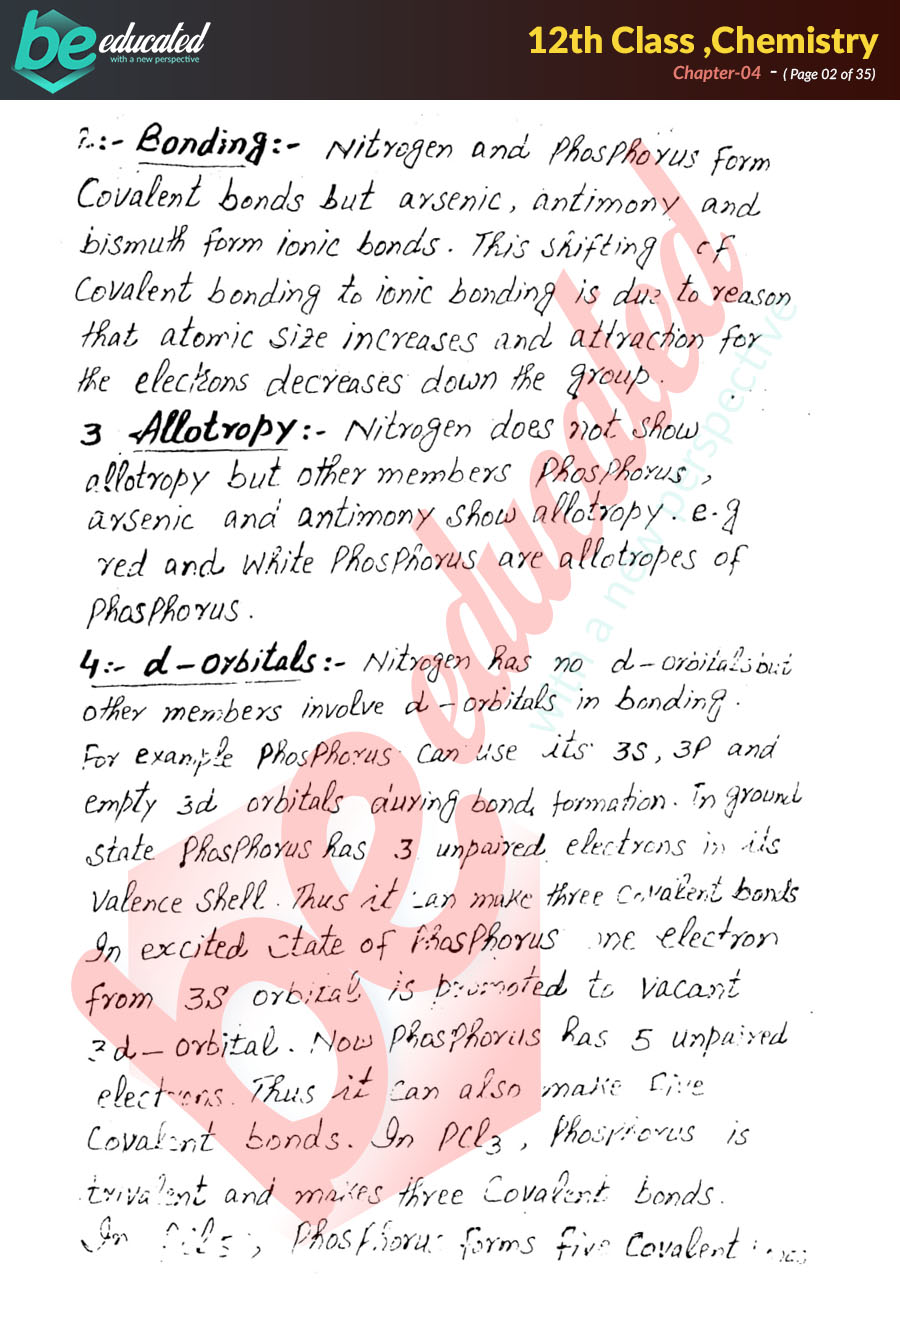 be educated
with a new perspective
12th Class ,Chemistry
Chapter-04 - ( Page 02 of 35)
2:- Bonding:- Nitrogen and Phosphorus form
Covalent bonds but arsenic, antimony and
bismuth form ionic bonds. This shifting of
Covalent bonding to ionic bonding is due to reason
that atomic size increases and attraction for
the electrons decreases down the group.
3 Allotropy:- Nitrogen does not show
allotropy but other members Phosphorus,
arsenic and antimony show allotropy. e.g
red and white Phosphorus are allotropes of
Phosphorus.
4:- d-orbitals:- Nitrogen has no d-orbitals but
other members involve d-orbitals in bonding.
For example Phosphorus can use its 3S, 3P and
empty 3d orbitals during bond formation. In ground
state Phosphorus has 3 unpaired electrons in its
Valence Shell. Thus it can make three Covalent bonds
In excited State of Phosphorus one electron
from 3S orbital is promoted to vacant
3d-orbital. Now Phosphorus has 5 unpaired
electrons. Thus it can also make five
Covalent bonds. In PCl3, Phosphorus is
trivalent and makes three Covalent bonds.
In , Phosphorus forms five Covalent
be educated
with a new perspective